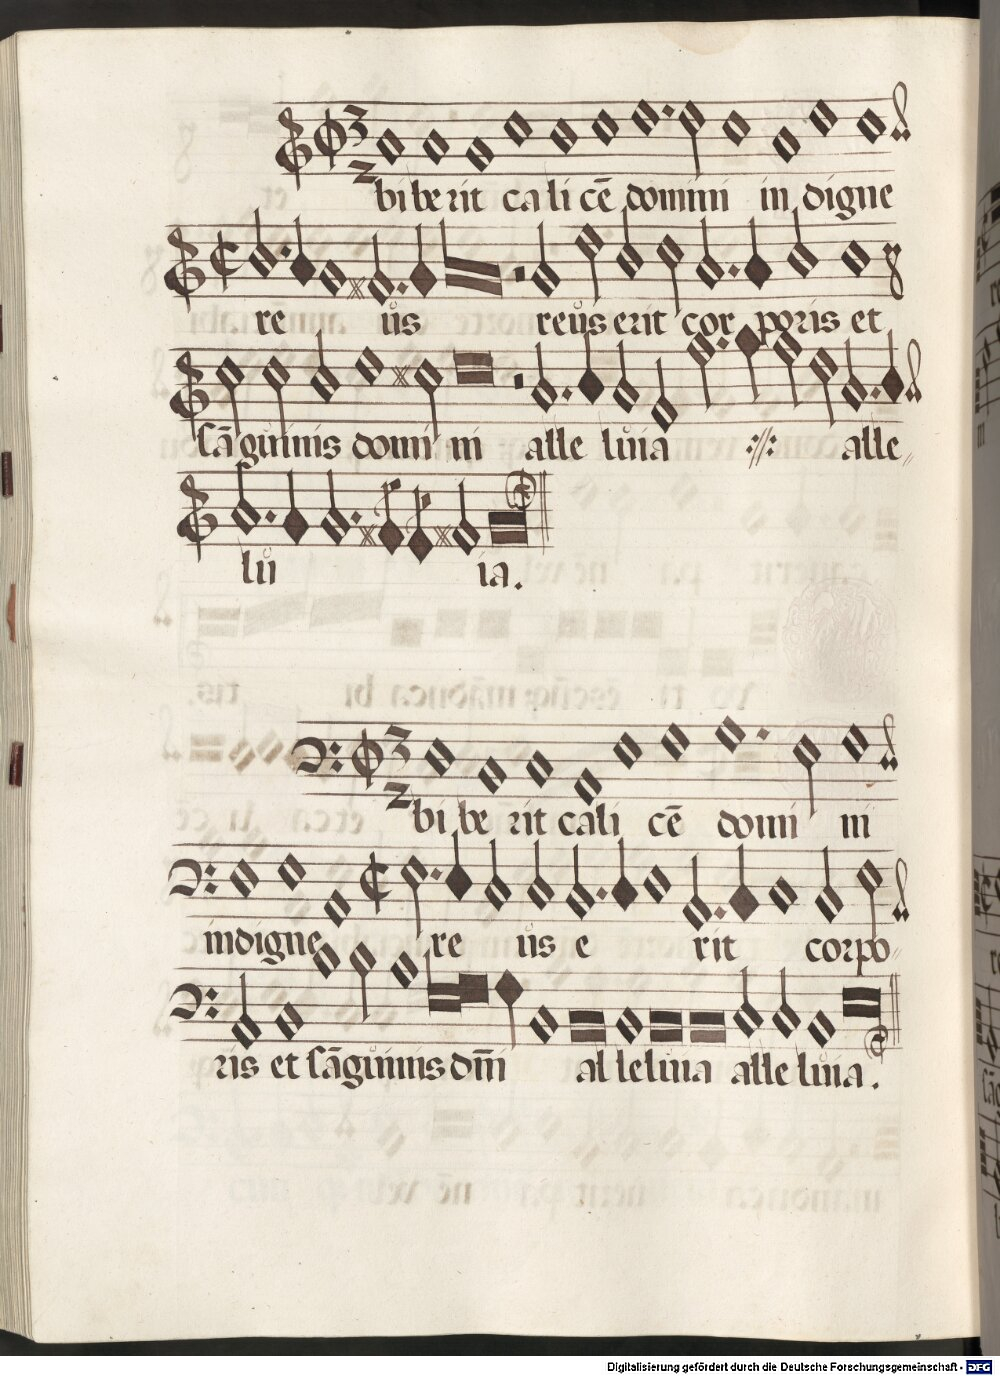 biberit calicē domini indigne
re ůs reůs erit corporis et
sāguinis domini alle lůia alle
lů ia.
biberit calicē domini
indigne re ůs erit corpo
ris et sāguinis dn̄i alleluia alle lůia.
Digitalisierung gefördert durch die Deutsche Forschungsgemeinschaft - DFG